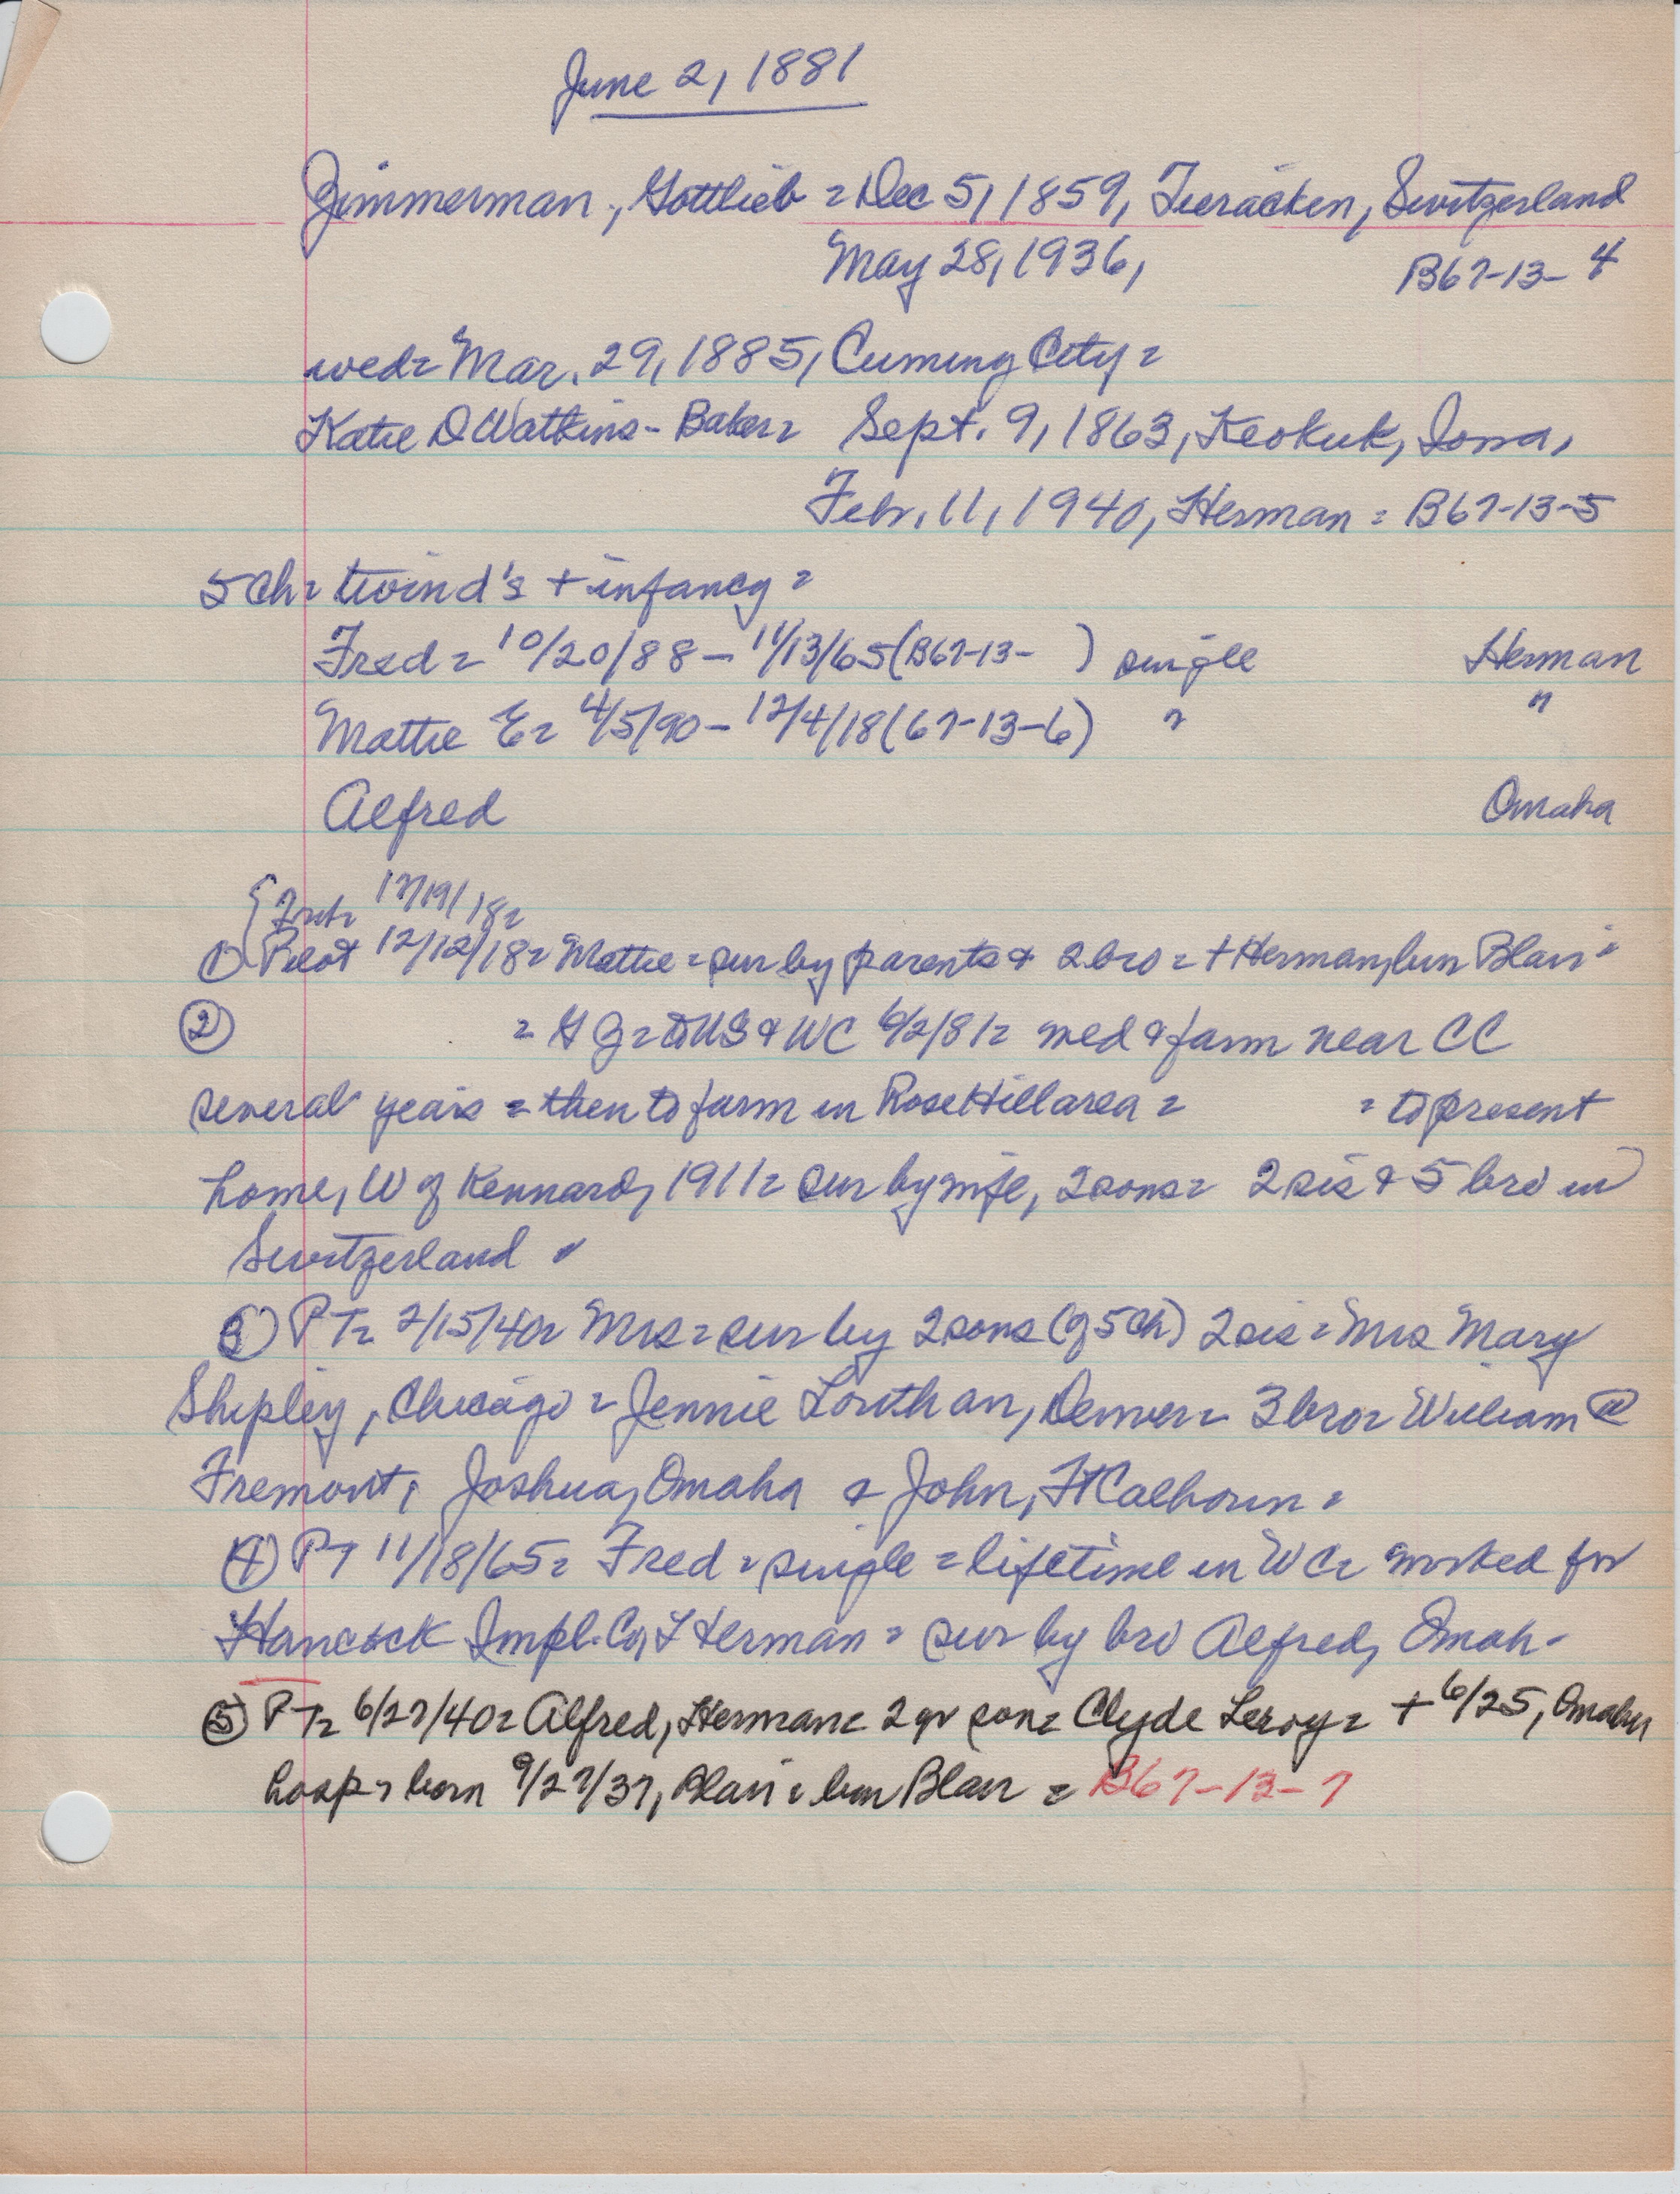 June 2, 1881
Zimmerman, Gottlieb = Dec 5, 1859, Switzerland
May 28, 1936, B67-13-4
wed = Mar. 29, 1885, Cuming City =
Katie D Watkins - Baker = Sept. 9, 1863, Keokuk, Iowa,
Febr. 11, 1940, Herman = B67-13-5
5 Ch = + infancy =
Fred = 10/20/88 - 11/13/65 (B67-13- ) single Herman
Mattie E = 4/5/90 - 12/4/18 (67-13-6) " "
Alfred Omaha
18 =
① Pilot 12/12/18 = Mattie = sur by parents & 2 bro = + Herman, bur Blair =
② = G Z = to US & WC 6/2/81 = wed & farm near CC
several years = then to farm in Rose Hill area = = to present
home, W of Kennard, 1911 = sur by wife, 2 sons = 2 sis & 5 bro in
Switzerland
③ PT = 2/15/40 = Mrs = sur by 2 sons (of 5 ch) 2 sis = Mrs Mary
Shipley, Chicago = Jennie Louthan, Denver = 3 bro = William
Fremont, Joshua, Omaha & John, Ft Calhoun =
④ PT 11/18/65 = Fred = single = lifetime in WC = worked for
Hancock Impl. Co, Herman = sur by bro Alfred, Omah-
⑤ PT = 6/27/40 = Alfred, Herman = 2 yr son = Clyde Leroy = + 6/25, Omaha
hosp = born 9/27/37, Blair = bur Blair = B67-13-7